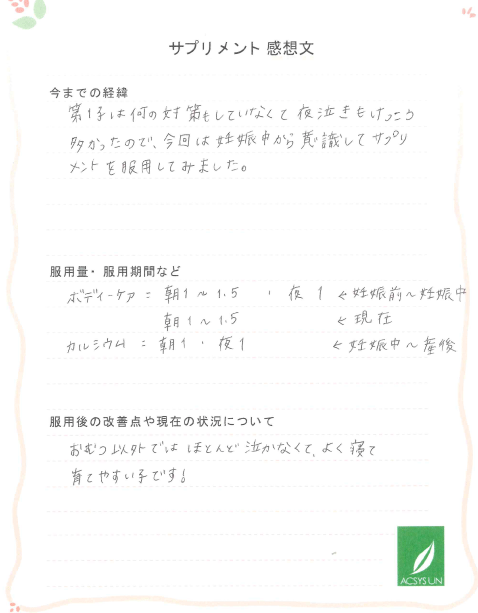 サプリメント 感想文
今までの経緯
第1子は何の対策もしていなくて夜泣きもけっこう
多かったので、今回は妊娠中から意識してサプリ
メントを服用してみました。
服用量・服用期間など
ボディーケア = 朝1～1.5 ・ 夜 1 ← 妊娠前～妊娠中
朝1～1.5 ← 現在
カルシウム = 朝1・夜1 ← 妊娠中～産後
服用後の改善点や現在の状況について
おむつ以外ではほとんど泣かなくて、よく寝て
育てやすい子です!
ACSYSUN